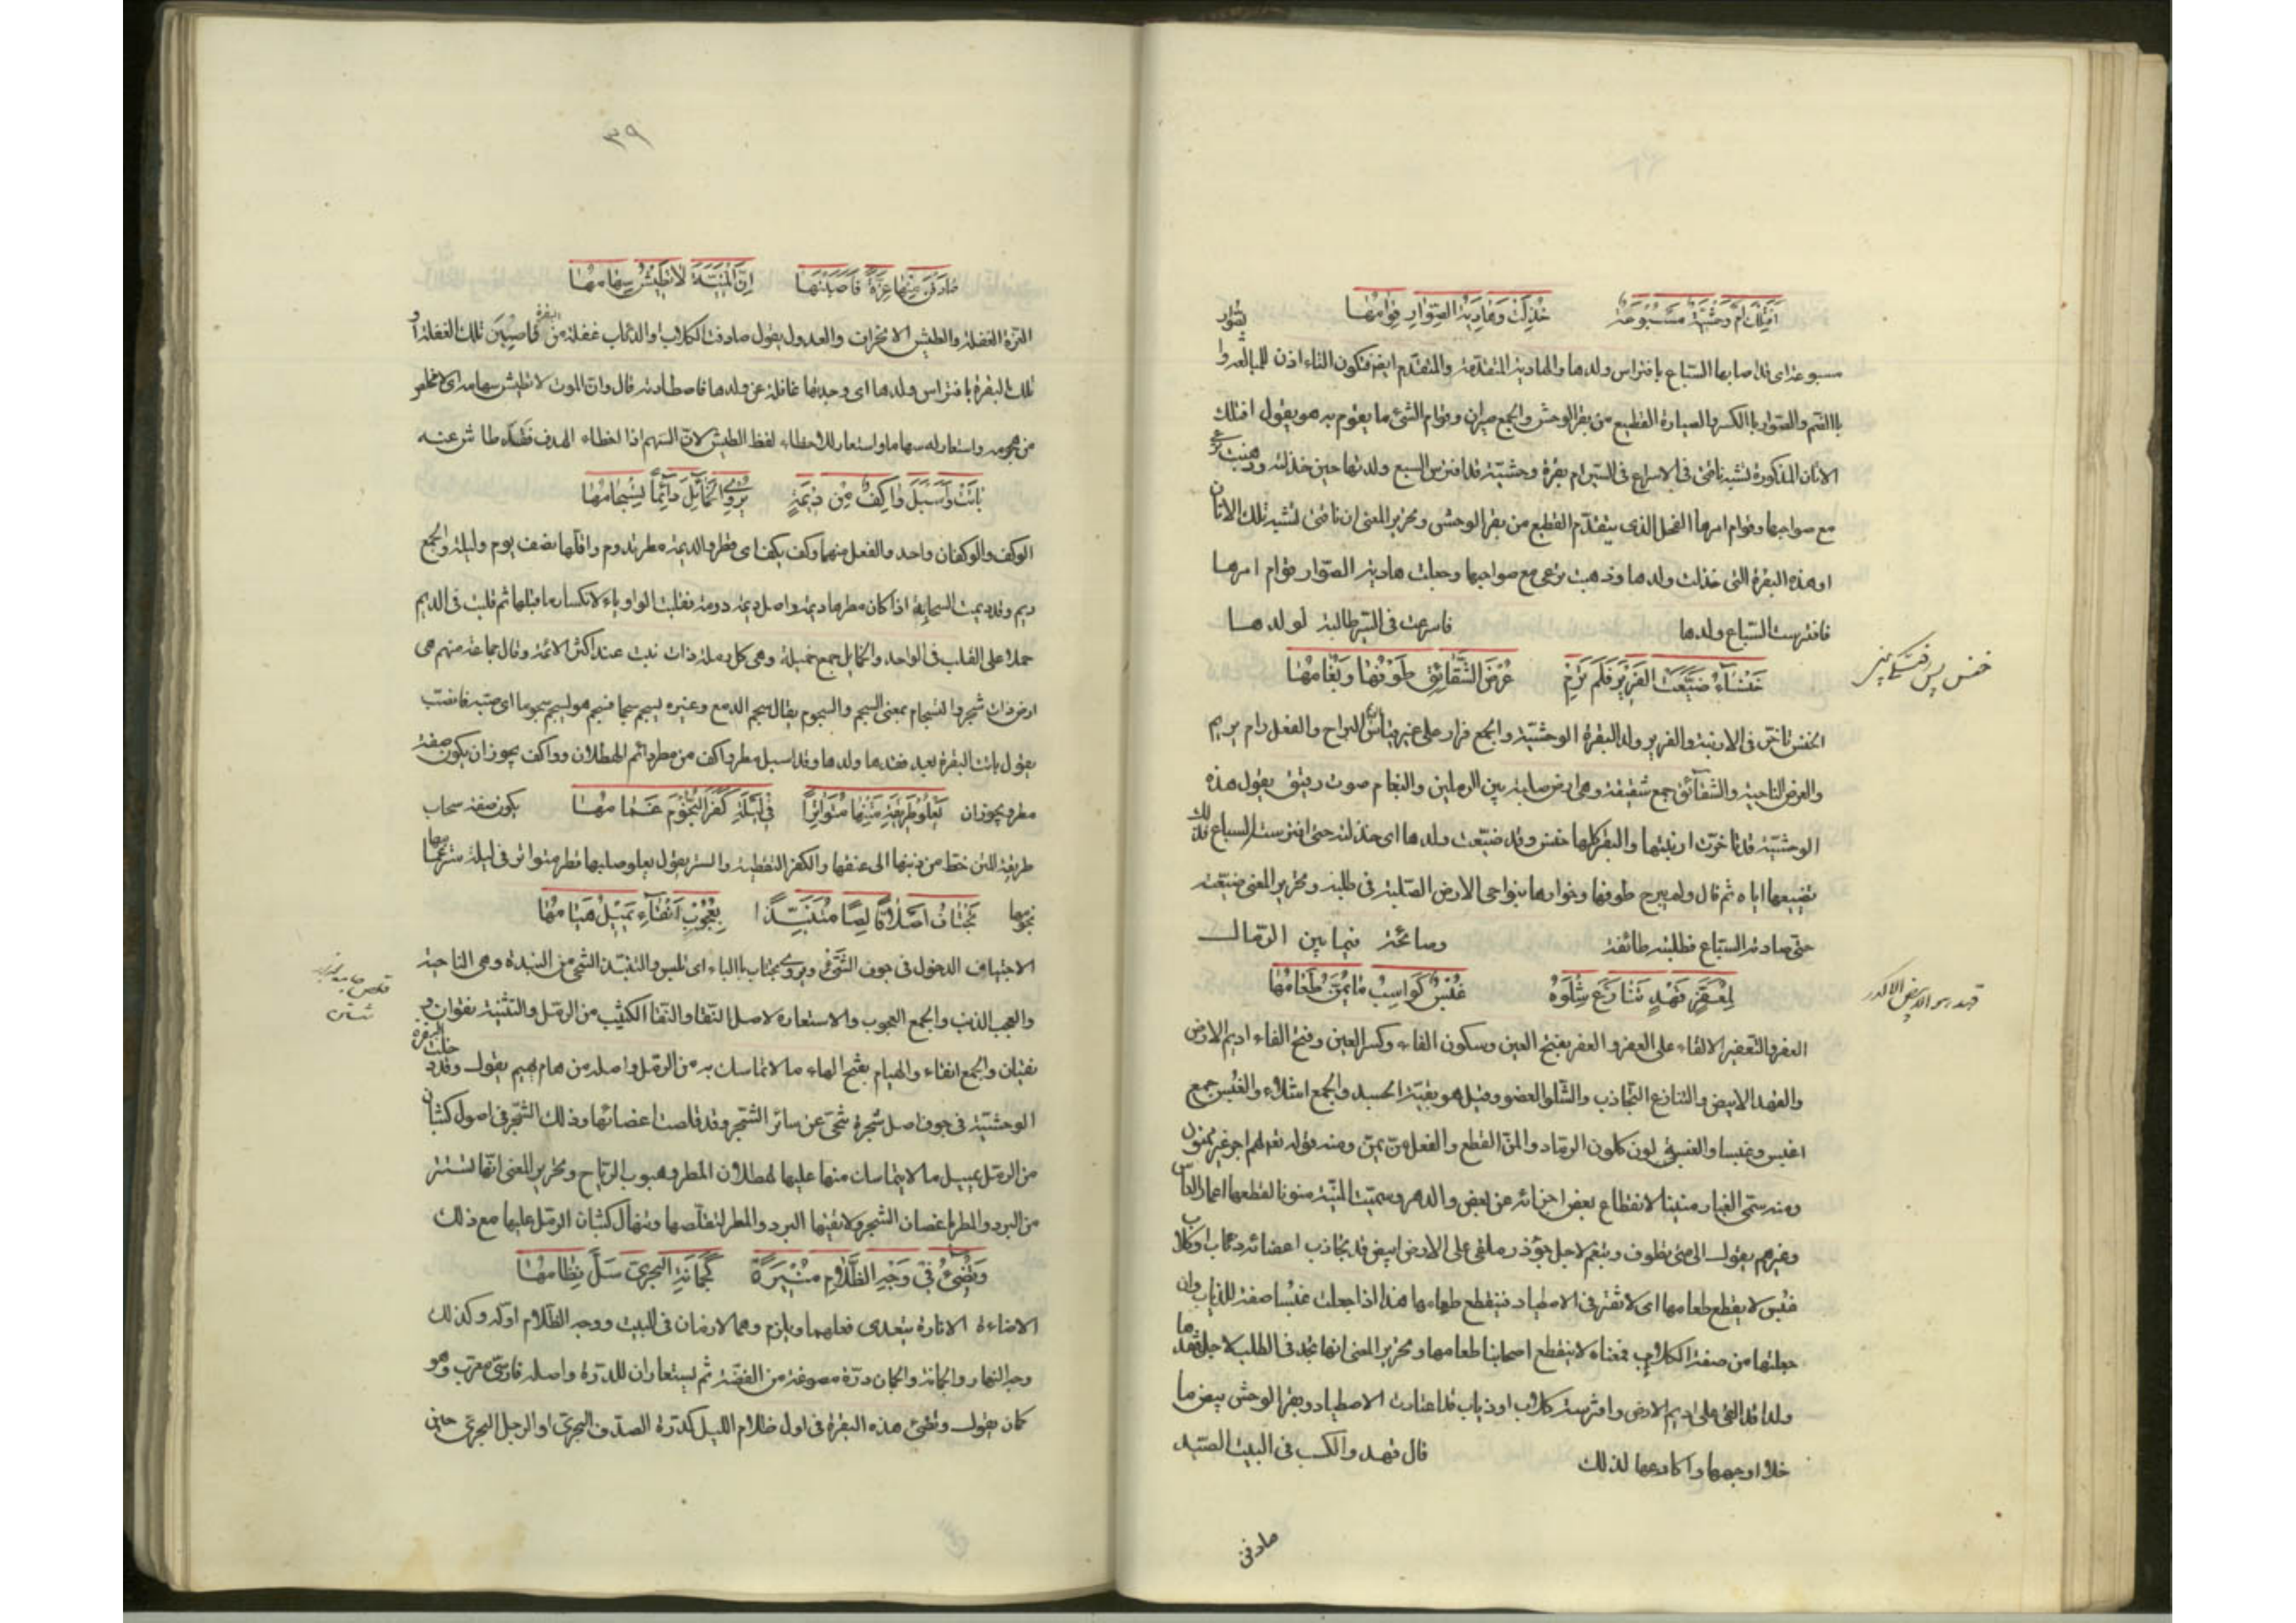 أفتلك أم وحشية مسبوعة خذلت وهادية الصوار قوامها
مسبوعة اى قد اصابها السباع بافتراس ولدها والهادية المتقدمة والمتقدم ايضا فتكون التاء اذن للمبالغة والصوار
بالضم والصوار بالكسر والصيارة القطيع من بقر الوحش والجمع صيران وقوام الشئ ما يقوم به هو يقول افتلك
الاتان المذكورة تشبه ناقتى فى الاسراع فى السير ام بقرة وحشية قد افترس السبع ولدها حين خذلته وذهبت ترعى
مع صواحبها وقوام امرها الفحل الذى يتقدم القطيع من بقر الوحش وتحرير المعنى ان ناقتى تشبه تلك الاتان
او هذه البقرة التى خذلت ولدها وذهبت ترعى مع صواحبها وجعلت هادية الصوار قوام امرها
فافترست السباع ولدها فاسرعت فى السير طالبة لولدها
خنساء ضيعت الفرير فلم يرم عرض الشقائق طوفها وبغامها
الخنس تأخر فى الارنبة والفرير ولد البقرة الوحشية والجمع فرار على غير قياس الريم البراح والفعل رام يريم
والعرض الناحية والشقائق جمع شقيقة وهى ارض صلبة بين الرملين والبغام صوت رقيق يقول هذه
الوحشية قد تأخرت ارنبتها والبقر كلها خنس وقد ضيعت ولدها اى خذلته حتى افترسته السباع فذلك
تضييعها اياه ثم قال ولم يبرح طوفها وخوارها بنواحى الارض الصلبة فى طلبه وتحرير المعنى ضيعته
حتى صادته السباع فطلبته طائفة وصائحة فيما بين الرمال
لمعفر قهد تنازع شلوه غبس كواسب ما يمن طعامها
العفر والتعفير الالقاء على العفر والعفر بفتح العين وسكون الفاء وكسر العين وفتح الفاء اديم الارض
والقهد الابيض والتنازع التجاذب والشلو العضو وقيل هو بقية الجسد والجمع اشلاء والغبس جمع
اغبس وغبساء والغبس لون كلون الرماد والمن القطع والفعل من يمن ومنه قوله تع لهم اجر غير ممنون
ومنه سمى الغبار منينا لانقطاع بعض اجزائه عن بعض والدهر وسميت المنية منونا لقطعها اعمار الناس
وغيرهم يقول الى هى تطوف وتبغم لاجل جؤذر ملقى على الارض ابيض قد تجاذب اعضائه ذئاب او كلاب
غبس لا يقطع طعامها اى لا تفتر فى الاصطياد فينقطع طعامها هذا اذا جعلت غبسا صفة للذئاب وان
جعلتها من صفة الكلاب فمعناه لا ينقطع اصحابنا طعامها وتحرير المعنى انها تجد فى الطلب لاجل فقدها
ولدا قد القى على اديم الارض وافترسته كلاب او ذياب قد اعتادت الاصطياد وبقر الوحش بيض ما
خلا اوجهها واكارعها لذلك قال قهد والكسب فى البيت الصيد
صادفن
٣٩
صادفن منها غرة فاصبنها ان المنية لا تطيش سهامها
الغرة الغفلة والطيش الانحراف والعدول يقول صادفت الكلاب او الذئاب غفلة من البقرة فاصبن تلك الغفلة او
تلك البقرة بافتراس ولدها اى وجدتها غافلة عن ولدها فاصطادته قال وان الموت لا تطيش سهامه اى لا مخلص
من هجومه واستعار له سهاما واستعار للاخطاء لفظ الطيش لان السهم اذا اخطاء الهدف فقد طاش عنه
باتت وأسبل واكف من ديمة يروى الخمائل دائما تسجامها
الوكف والوكفان واحد والفعل منهما وكف يكف اى قطر والديمة مطر تدوم واقلها نصف يوم وليلة والجمع
ديم وقد ديمت السحابة اذا كان مطرها ديمة واصل ديمة دومة فقلبت الواو ياء لانكسار ما قبلها ثم قلبت فى الديم
حملا على القلب فى الواحد والخمايل جمع خميلة وهى كل رملة ذات نبت عند اكثر الائمة وقال جماعة منهم هى
ارض ذات شجر والتسجام بمعنى السجم والسجوم يقال سجم الدمع وغيره يسجم سجما فسجم هو يسجم سجوما اى صبه فانصب
يقول باتت البقرة بعد فقدها ولدها وقد اسبل مطر واكف من مطر دائم الهطلان وواكف يجوز ان يكون صفة
مطر ويجوز ان يكون صفة سحاب
يعلو طريقة متنها متواترا فى ليلة كفر النجوم غمامها
طريقة المتن خط من ذنبها الى عنقها والكفر التغطية والستر يقول يعلو صلبها قطر متواتر فى ليلة ستر غمامها
نجومها
تجتاف اصلا قالصا متنبذا بعجوب انقاء يميل هيامها
الاجتياف الدخول فى جوف الشئ ويروى تجتاب بالباء اى تلبس والتنبذ التنحى من النبذة وهى الناحية
والعجب الذنب والجمع العجوب والاستعارة لاصل النقا والنقا الكثيب من الرمل والتثنية نقوان و
نقيان والجمع انقاء والهيام بفتح الهاء ما لا تماسك به من الرمل واصله من هام يهيم يقول وقد دخلت البقرة
الوحشية فى جوف اصل شجرة تنحى عن سائر الشجر وقد قلصت اغصانها وذلك الشجر فى اصول كثبان
من الرمل يميل ما لا يتماسك منها عليها لهطلان المطر وهبوب الرياح وتحرير المعنى انها تستتر
من البرد والمطر باغصان الشجر ولا تقيها البرد والمطر لتقلصها وتنهال كثبان الرمل عليها مع ذلك
وتضئ فى وجه الظلام منيرة كجمانة البحرى سل نظامها
الاضاءة الانارة يتعدى فعلهما ويلزم وهما لازمان فى البيت ووجه الظلام اوله وكذلك
وجه النهار والجمانة والجمان درة مصوغة من الفضة ثم يستعاران للدرة واصله فارسى معرب وهو
كمان يقول وتضئ هذه البقرة فى اول ظلام الليل كدرة الصدف البحرى او الرجل البحرى حين